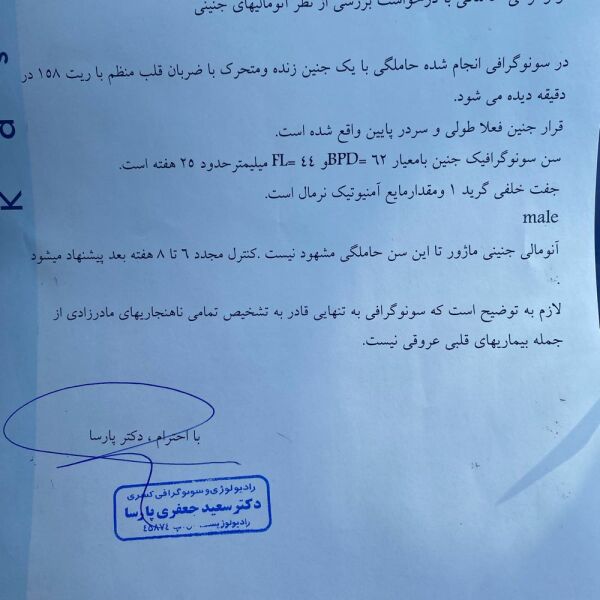 حاملگی با درخواست بررسی از نظر آنومالیهای جنینی
در سونوگرافی انجام شده حاملگی با یک جنین زنده ومتحرک با ضربان قلب منظم با ریت ۱۵۸ در
دقیقه دیده می شود.
قرار جنین فعلا طولی و سردر پایین واقع شده است.
سن سونوگرافیک جنین بامعیار ۶۲ =BPDو ٤٤ =FL میلیمترحدود ۲۵ هفته است.
جفت خلفی گرید ۱ ومقدارمایع آمنیوتیک نرمال است.
male
آنومالی جنینی ماژور تا این سن حاملگی مشهود نیست .کنترل مجدد ٦ تا ۸ هفته بعد پیشنهاد میشود
.
لازم به توضیح است که سونوگرافی به تنهایی قادر به تشخیص تمامی ناهنجاریهای مادرزادی از
جمله بیماریهای قلبی عروقی نیست.
با احترام ، دکتر پارسا
رادیولوژی و سونوگرافی کسری
دکتر سعید جعفری پارسا
رادیولوژیست ٤٥٨٧٤
K a s